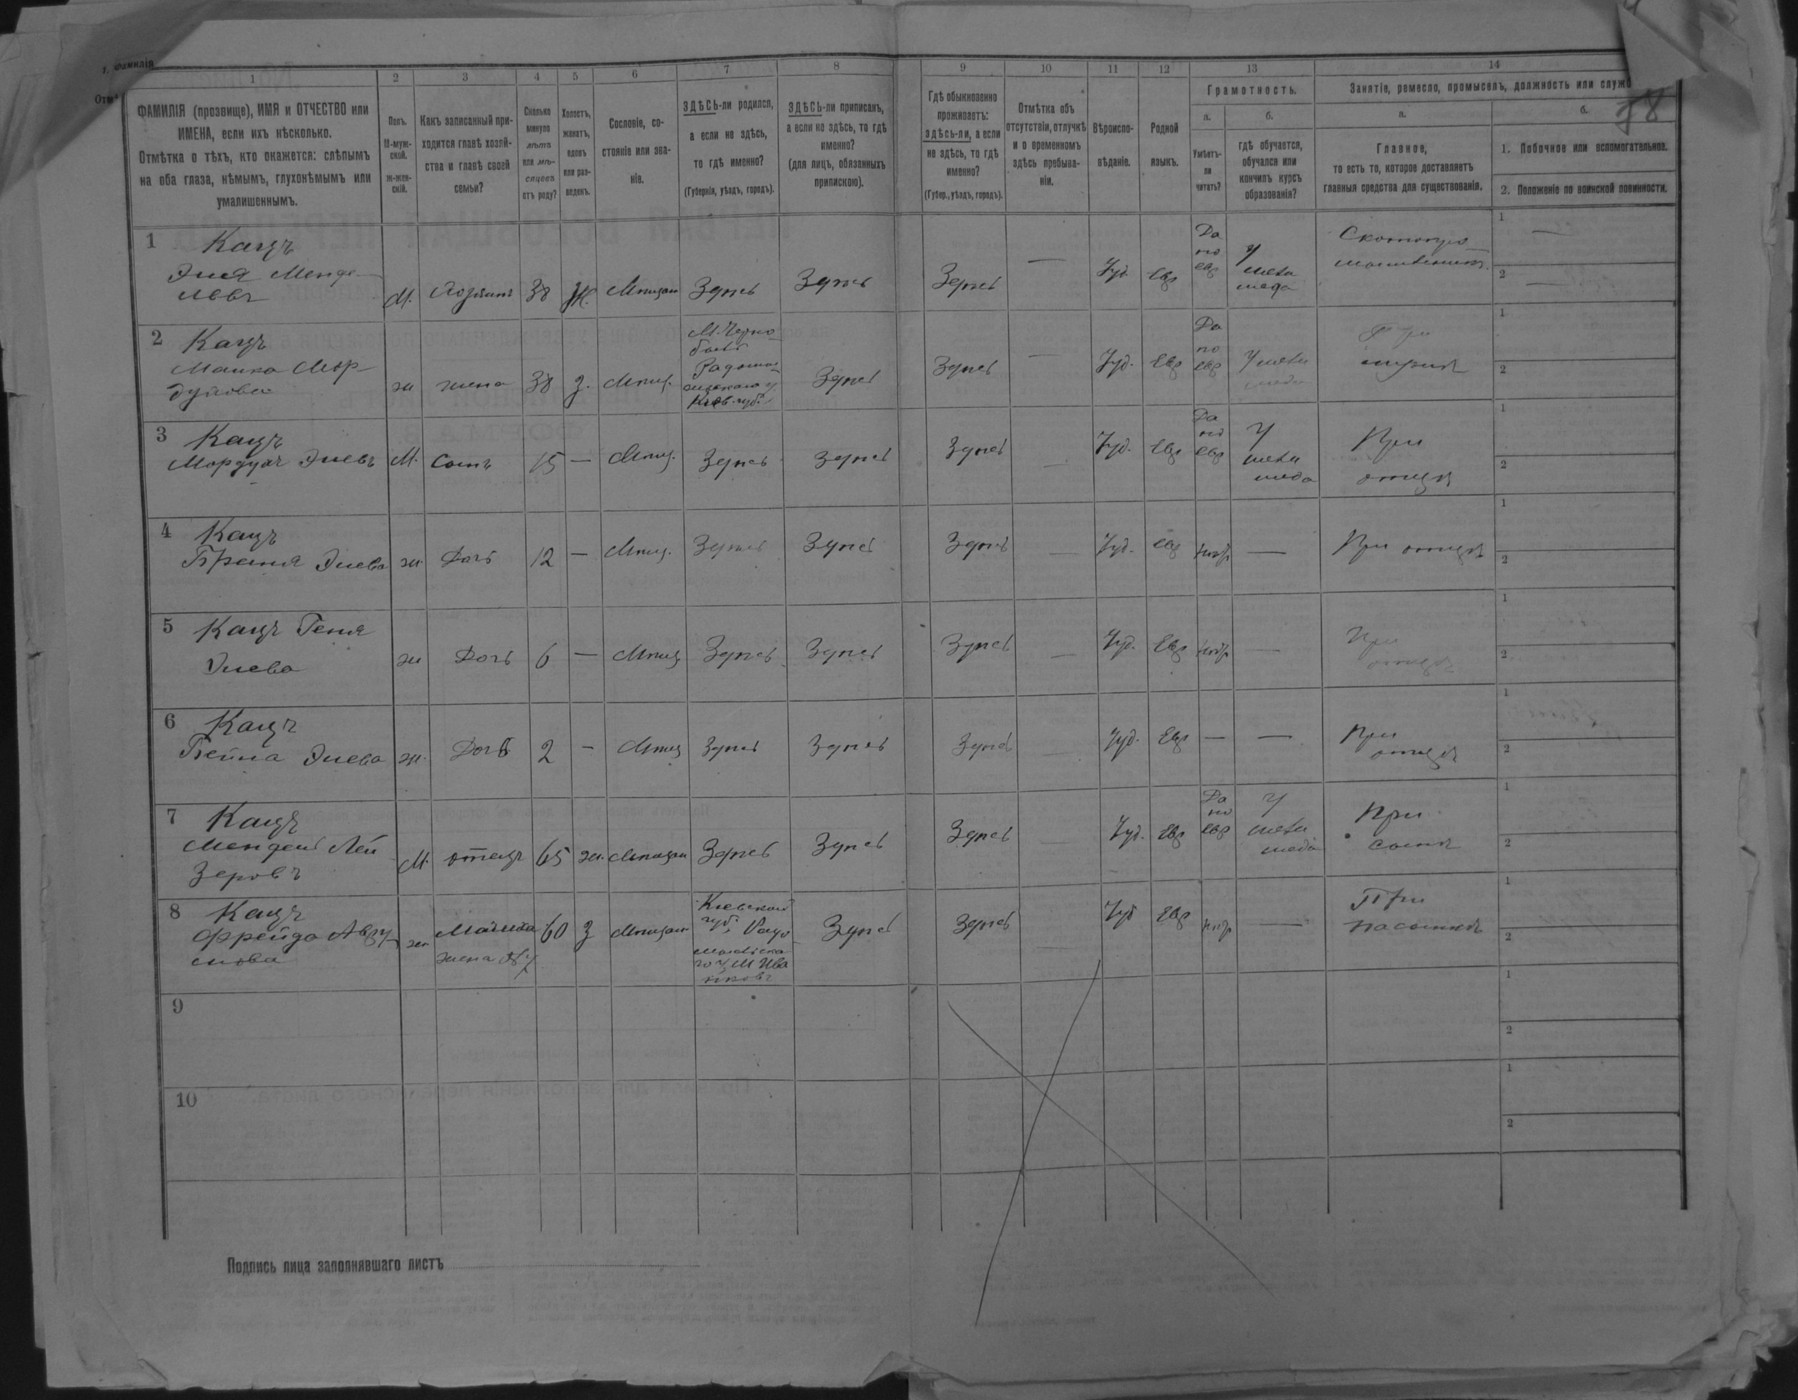 1
2
3
4
5
6
7
8
9
10
11
12
13
14
ФАМИЛІЯ (прозвище), ИМЯ и ОТЧЕСТВО или
ИМЕНА, если ихъ нѣсколько.
Отмѣтка о тѣхъ, кто окажется: слѣпымъ
на оба глаза, нѣмымъ, глухонѣмымъ или
умалишеннымъ.
Полъ.
М-муж-
ской.
ж-жен-
скій.
Какъ записанный при-
ходится главѣ хозяй-
ства и главѣ своей
семьи?
Сколько
минуло
лѣтъ
или мѣ-
сяцевъ
отъ роду?
Холостъ,
женатъ,
вдовъ
или раз-
веденъ.
Сословіе, со-
стояніе или зва-
ніе.
ЗДѢСЬ-ли родился,
а если не здѣсь,
то гдѣ именно?
(Губернія, уѣздъ, городъ).
ЗДѢСЬ-ли приписанъ,
а если не здѣсь, то гдѣ
именно?
(для лицъ, обязанныхъ
припискою).
Гдѣ обыкновенно
проживаетъ:
здѣсь-ли, а если
не здѣсь, то гдѣ
именно?
(Губер., уѣздъ, городъ).
Отмѣтка объ
отсутствіи, отлучкѣ
и о временномъ
здѣсь пребыва-
ніи.
Вѣроиспо-
вѣданіе.
Родной
языкъ.
Грамотность.
а.
Умѣетъ-
ли
читать?
б.
гдѣ обучается,
обучался или
кончилъ курсъ
образованія?
Занятіе, ремесло, промыселъ, должность или служ
а.
Главное,
то есть то, которое доставляетъ
главныя средства для существованія.
б.
1. Побочное или вспомогательное.
2. Положеніе по воинской повинности.
78
1 Кацъ
Элія Менде-
левъ
М. Хозяинъ 38 Ж. Мѣщан Здѣсь Здѣсь Здѣсь — Іуд Евр
Да
по
евр
У
мела
меда
1 —
2 —
2 Кацъ
Мордухова
ж жена 38 з. Мѣщ.
М. Черно-
быль
Радомы-
Кіев. губ.
Здѣсь Здѣсь — Іуд. Евр
Да
по
евр
У мела
меда
При
мужѣ
1
2
3 Кацъ
Мордухъ Элевъ М. Сынъ 15 — Мѣщ. Здѣсь Здѣсь Здѣсь — Іуд. Евр
Да
по
евр
У
мела
меда
При
отцѣ
1
2
4 Кацъ
Браня Элева ж Дочь 12 — Мѣщ. Здѣсь Здѣсь Здѣсь Іуд. Евр негр — При отцѣ
1
2
5 Кацъ Геня
Элева
ж Дочь 6 — Мѣщ Здѣсь Здѣсь Здѣсь — Іуд. Евр негр —
При
отцѣ
1
2
6 Кацъ
Бейла Элева ж. Дочь 2 — Мѣщ Здѣсь Здѣсь Здѣсь — Іуд. Евр — —
При
отцѣ
1
2
7 Кацъ
Мендель Лей
Зеровъ
М. отецъ 65 ж. Мѣщан Здѣсь Здѣсь Здѣсь — Іуд. Евр
Да
по
евр
У
мела
меда
При
сынѣ
1
2
8 Кацъ
Фрейда
ж Мачиха
жена № 7
60 з Мѣщан
Кіевской
губ. Радо
мысльска
го у. М Ива
нковъ
Здѣсь Здѣсь — Іуд Евр негр —
При
пасынкѣ
1
2
9
1
2
10
1
2
Подпись лица заполнявшаго листъ